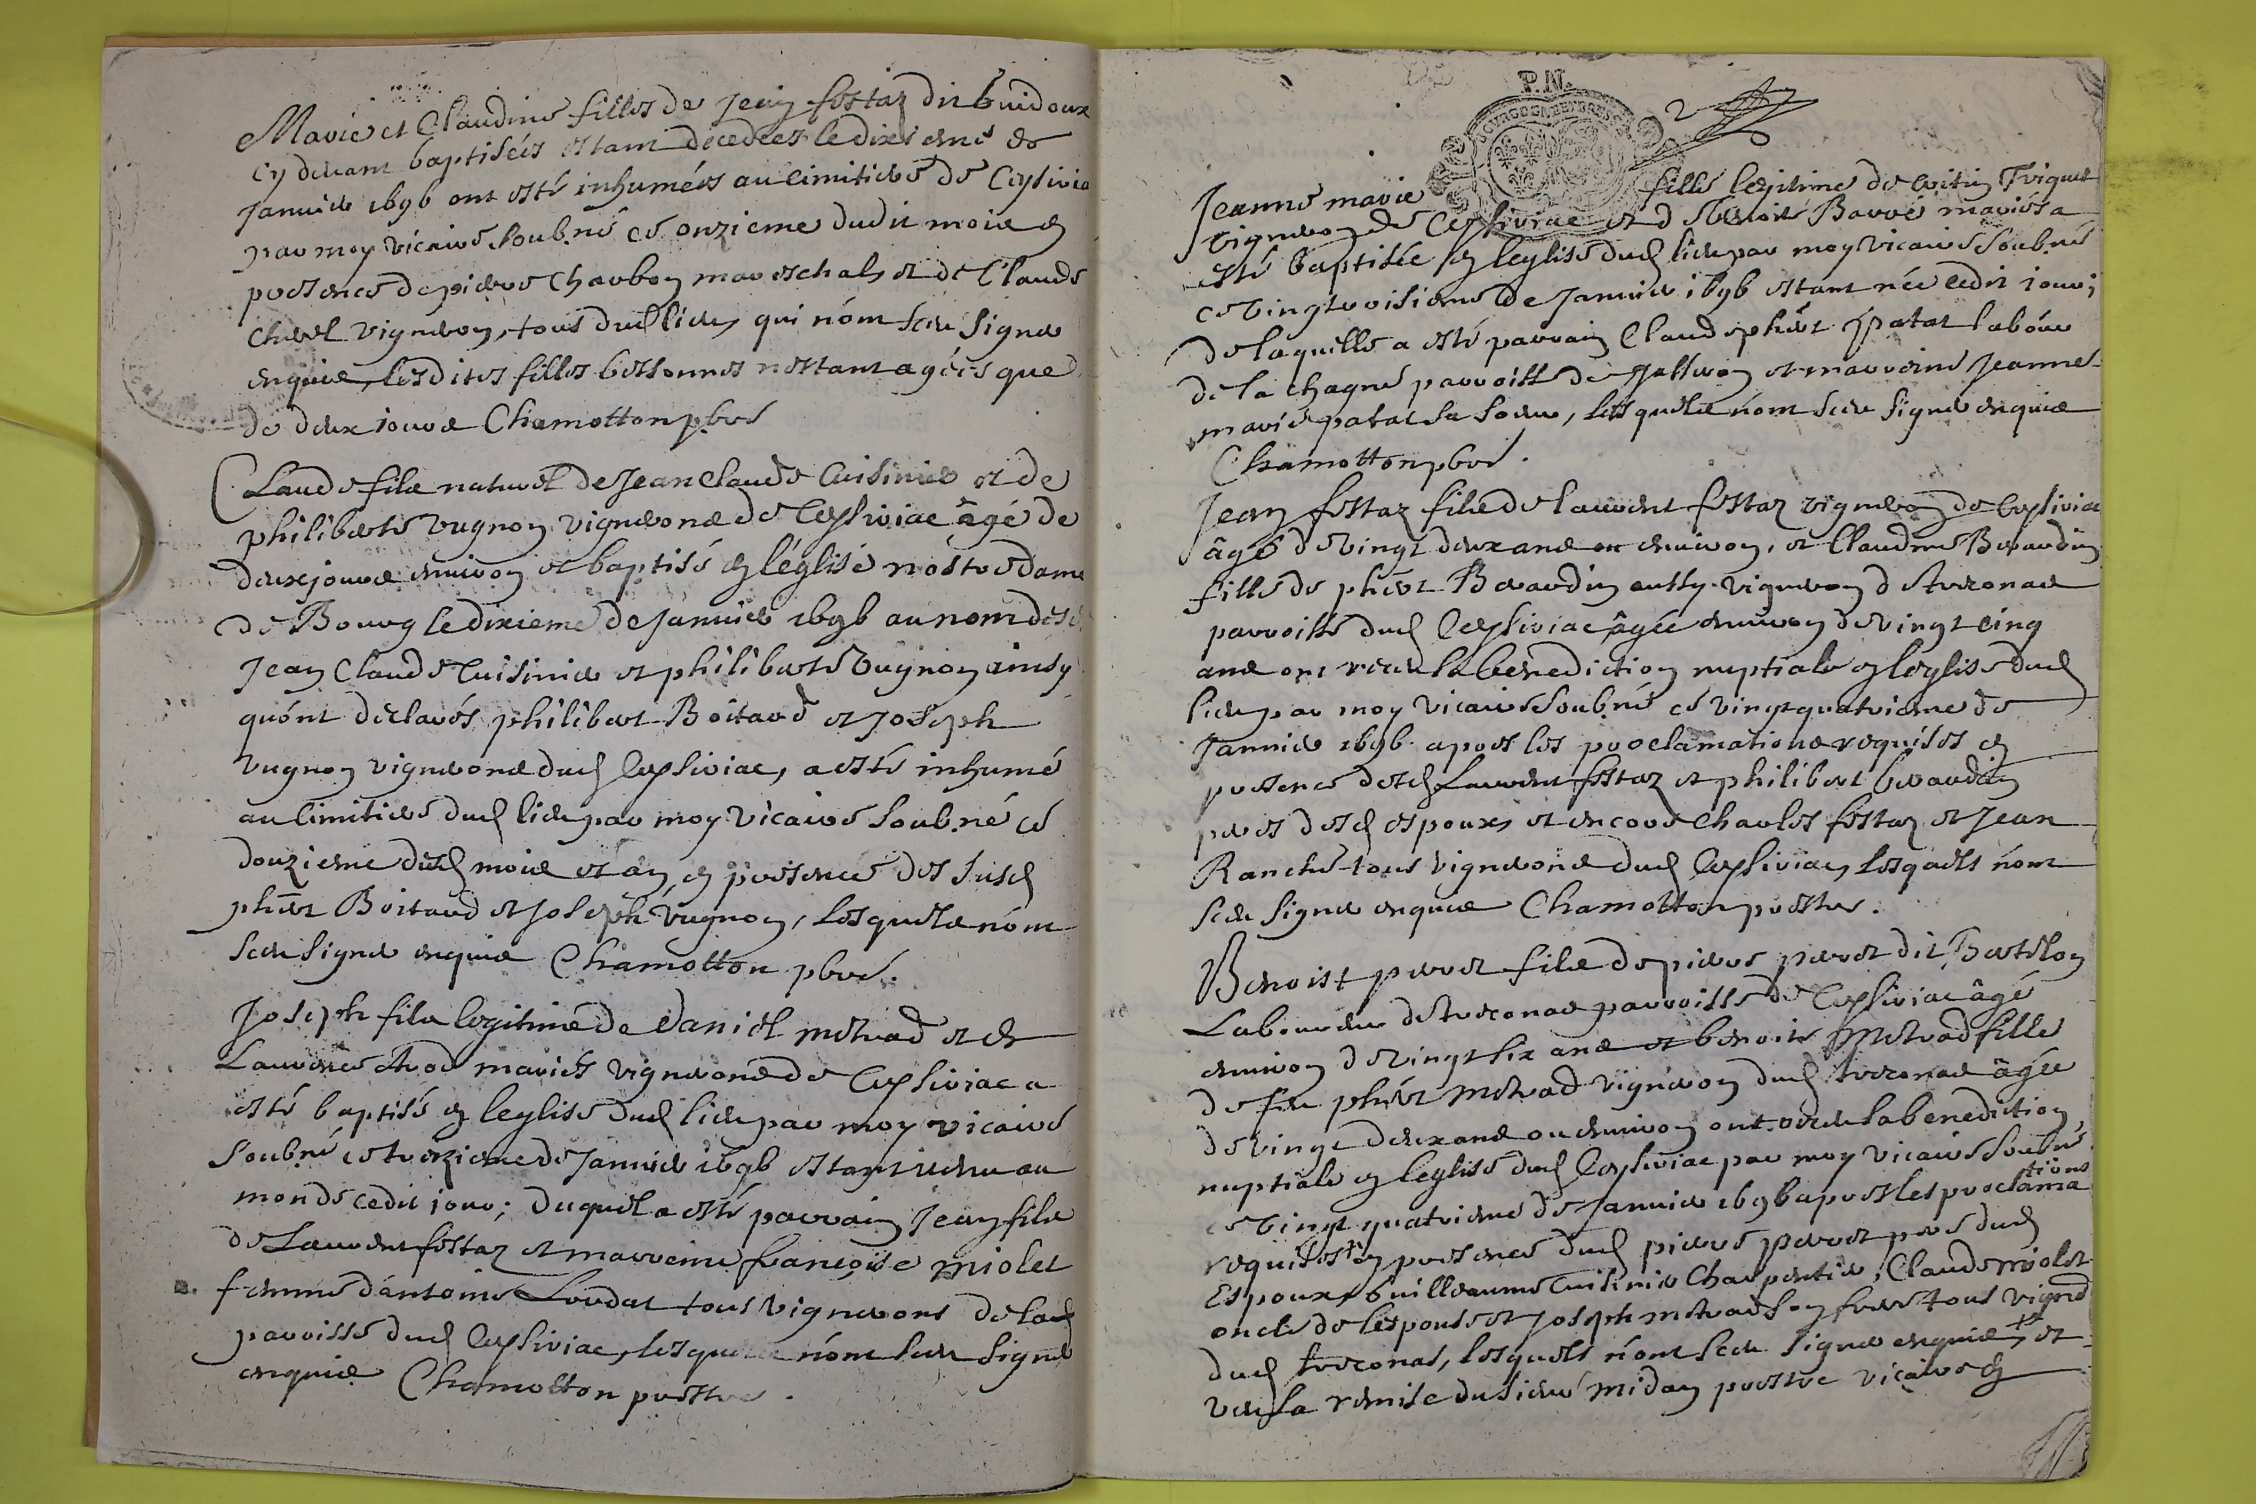 Marie et Claudine filles de Jean fostaz dit buidoux
cy devant baptisées estant decedees le dixieme de
Janvier 1696 ont esté inhumées au cimitiere de Ceyseria
par moy vicaire soubné ce onzieme dudit mois en
presence de pierre Charbon mareschal, et de Claude
vigneron, tous dud lieu, qui n'ont sceu signer
enquis, lesdites filles bessonnes n'estant agées que
de deux jours Chamotton pbre
Claude fils naturel de Jean Claude Cuisinier et de
philiberte vugnon vignerons de Ceyseriac âgé de
deux jours environ et baptisé en l'église nostre dame
de Bourg le dixieme de Janvier 1696 au nom desd
Jean Claude Cuisinier et philiberte Vugnon ainsy
qu'ont declarés philibert Boitard et Joseph
vugnon vignerons dud Ceyseriac, a esté inhumé
au cimitiere dud lieu par moy vicaire soubné ce
douzieme dud mois et an en presence des susd
phibert Boitard et Joseph vugnon, lesquels n'ont
sceu signer enquis Chamotton pbre.
Joseph fils legitime de Daniel metrad et de
Laurence mariés vignerons de Ceyseriac a
esté baptisé en leglise dud lieu par moy vicaire
soubné ce treizieme de Janvier 1696 estant venu au
monde cedit jour; duquel a esté parrain Jean fils
de Laurent fostaz et marreine françoise miolet
femme d'antoine Loudat tous vignerons de lad
parroisse dud Ceyseriac, lesquels n'ont sceu signer
enquis Chamotton prestre.
P.N.
BOURGOGNE BRESSE
2
Jeanne marie fille legitime de Triquet
vigneron de Ceyseriac et d Barré mariés a
esté baptisée en leglise dud lieu par moy vicaire soubné
ce vingtroisieme de Janvier 1696 estant née cedit jour;
de laquelle a esté parrain Claude phibert patat labour
de la chagne parroisse de Jasseron et marreine Jeanne
marie patat sa soeur, lesquels n'ont sceu signer enquis
Chamotton pbre.
Jean fostaz fils de laurent fostaz vigneron de Ceyseriac
âgé de vingt deux ans ou environ, et Claudine Beraudin
fille de phibert Beraudin aussy vigneron de treconas
parroisse dud Ceyseriac âgée environ de vingt cinq
ans ont receu la benediction nuptiale en leglise dud
lieu par moy vicaire soubné ce vingt quatrieme de
Janvier 1696 apres les proclamations requises en
presence desd Laurent fostaz et philibert beraudin
peres desd espoux, et encore Charles fostaz et Jean
Ranche tous vignerons dud Ceyseriac, lesquels n'ont
sceu signer enquis Chamotton prestre.
Benoist perret fils de pierre perret dit Bertelon
Laboureur de treconas parroisse de Ceyseriac âgé
environ de vingt six ans et benoite Metrad fille
de feu phibert Metrad vigneron dud treconas âgée
de vingt deux ans ou environ ont receu la benediction
nuptiale en leglise dud Ceyseriac par moy vicaire soubné
ce vingt quatrieme de Janvier 1696 apres les proclama
tions
requises en presence dud pierre perret pere dud
Espoux, Guilleaume Cuisinier Charpentier, Claude miolet
oncle de lespouse et Joseph metrad son frere tous vigne
dud treconas, lesquels n'ont sceu signer enquis, et
veu la remise du sieur midan prestre vicaire en